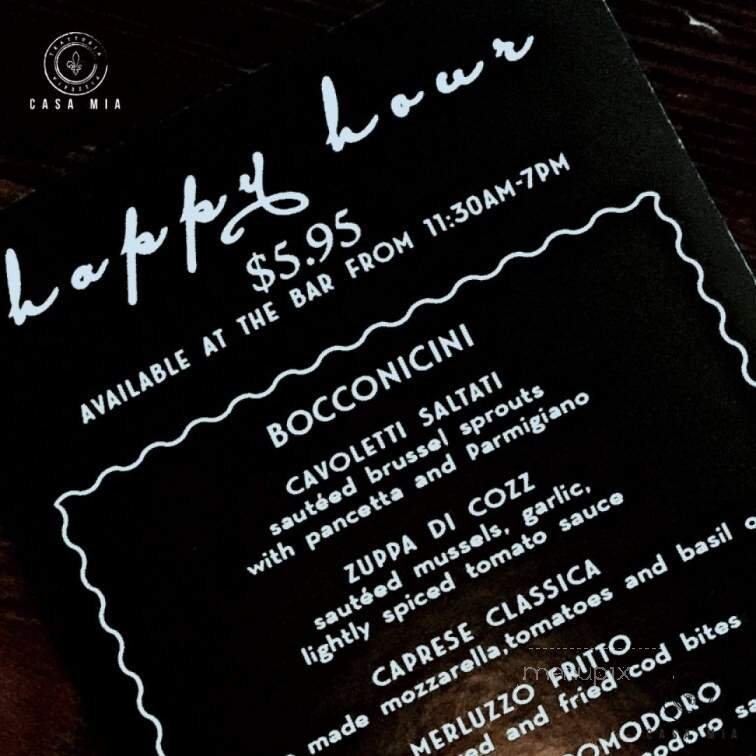 TRATTORIA
PIZZERIA
CASA MIA
happy hour
$5.95
AVAILABLE AT THE BAR FROM 11:30AM-7PM
BOCCONICINI
CAVOLETTI SALTATI
sautéed brussel sprouts
with pancetta and Parmigiano
ZUPPA DI COZZ
sautéed mussels, garlic,
lightly spiced tomato sauce
CAPRESE CLASSICA
made mozzarella,tomatoes and basil
MERLUZZO FRITTO
and fried cod bites
menupix
CASA MIA